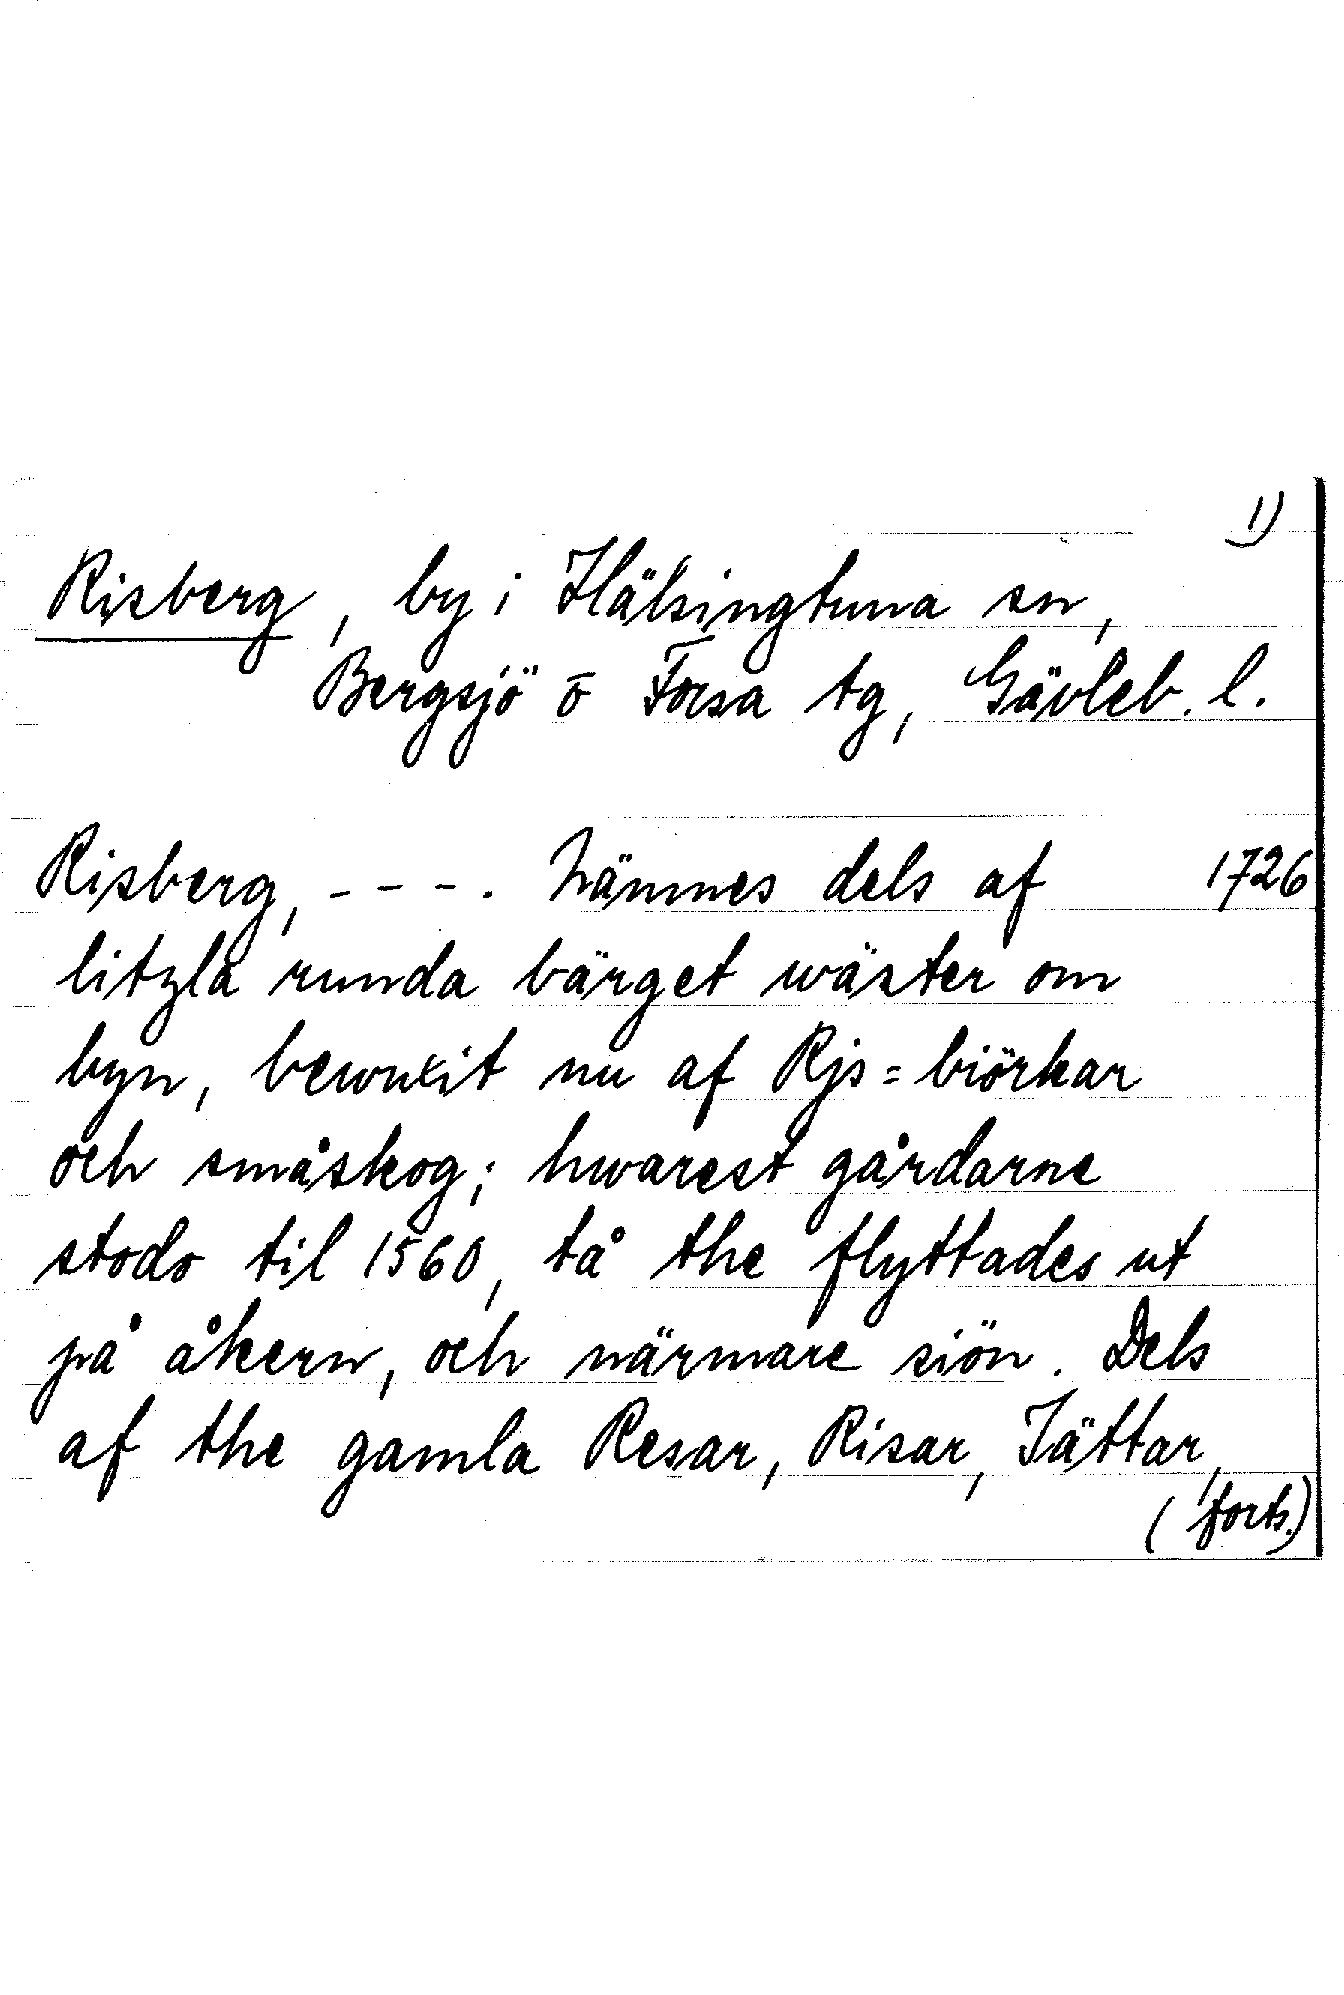 1)
Risberg, by i Hälsingtuna sn,
Bergsjö o Forsa tg, Gävleb. l.
Risberg, - - - . Nämnes dels af 1726
litzla runda bärget wäster om
byn, bewuxit nu af Rjs=biörkar
och småskog; hwarest gårdarne
stodo til 1560, tå the flyttades ut
på åkern, och närmare siön. Dels
af the gamla Resar, Risar, Jättar,
(forts.)